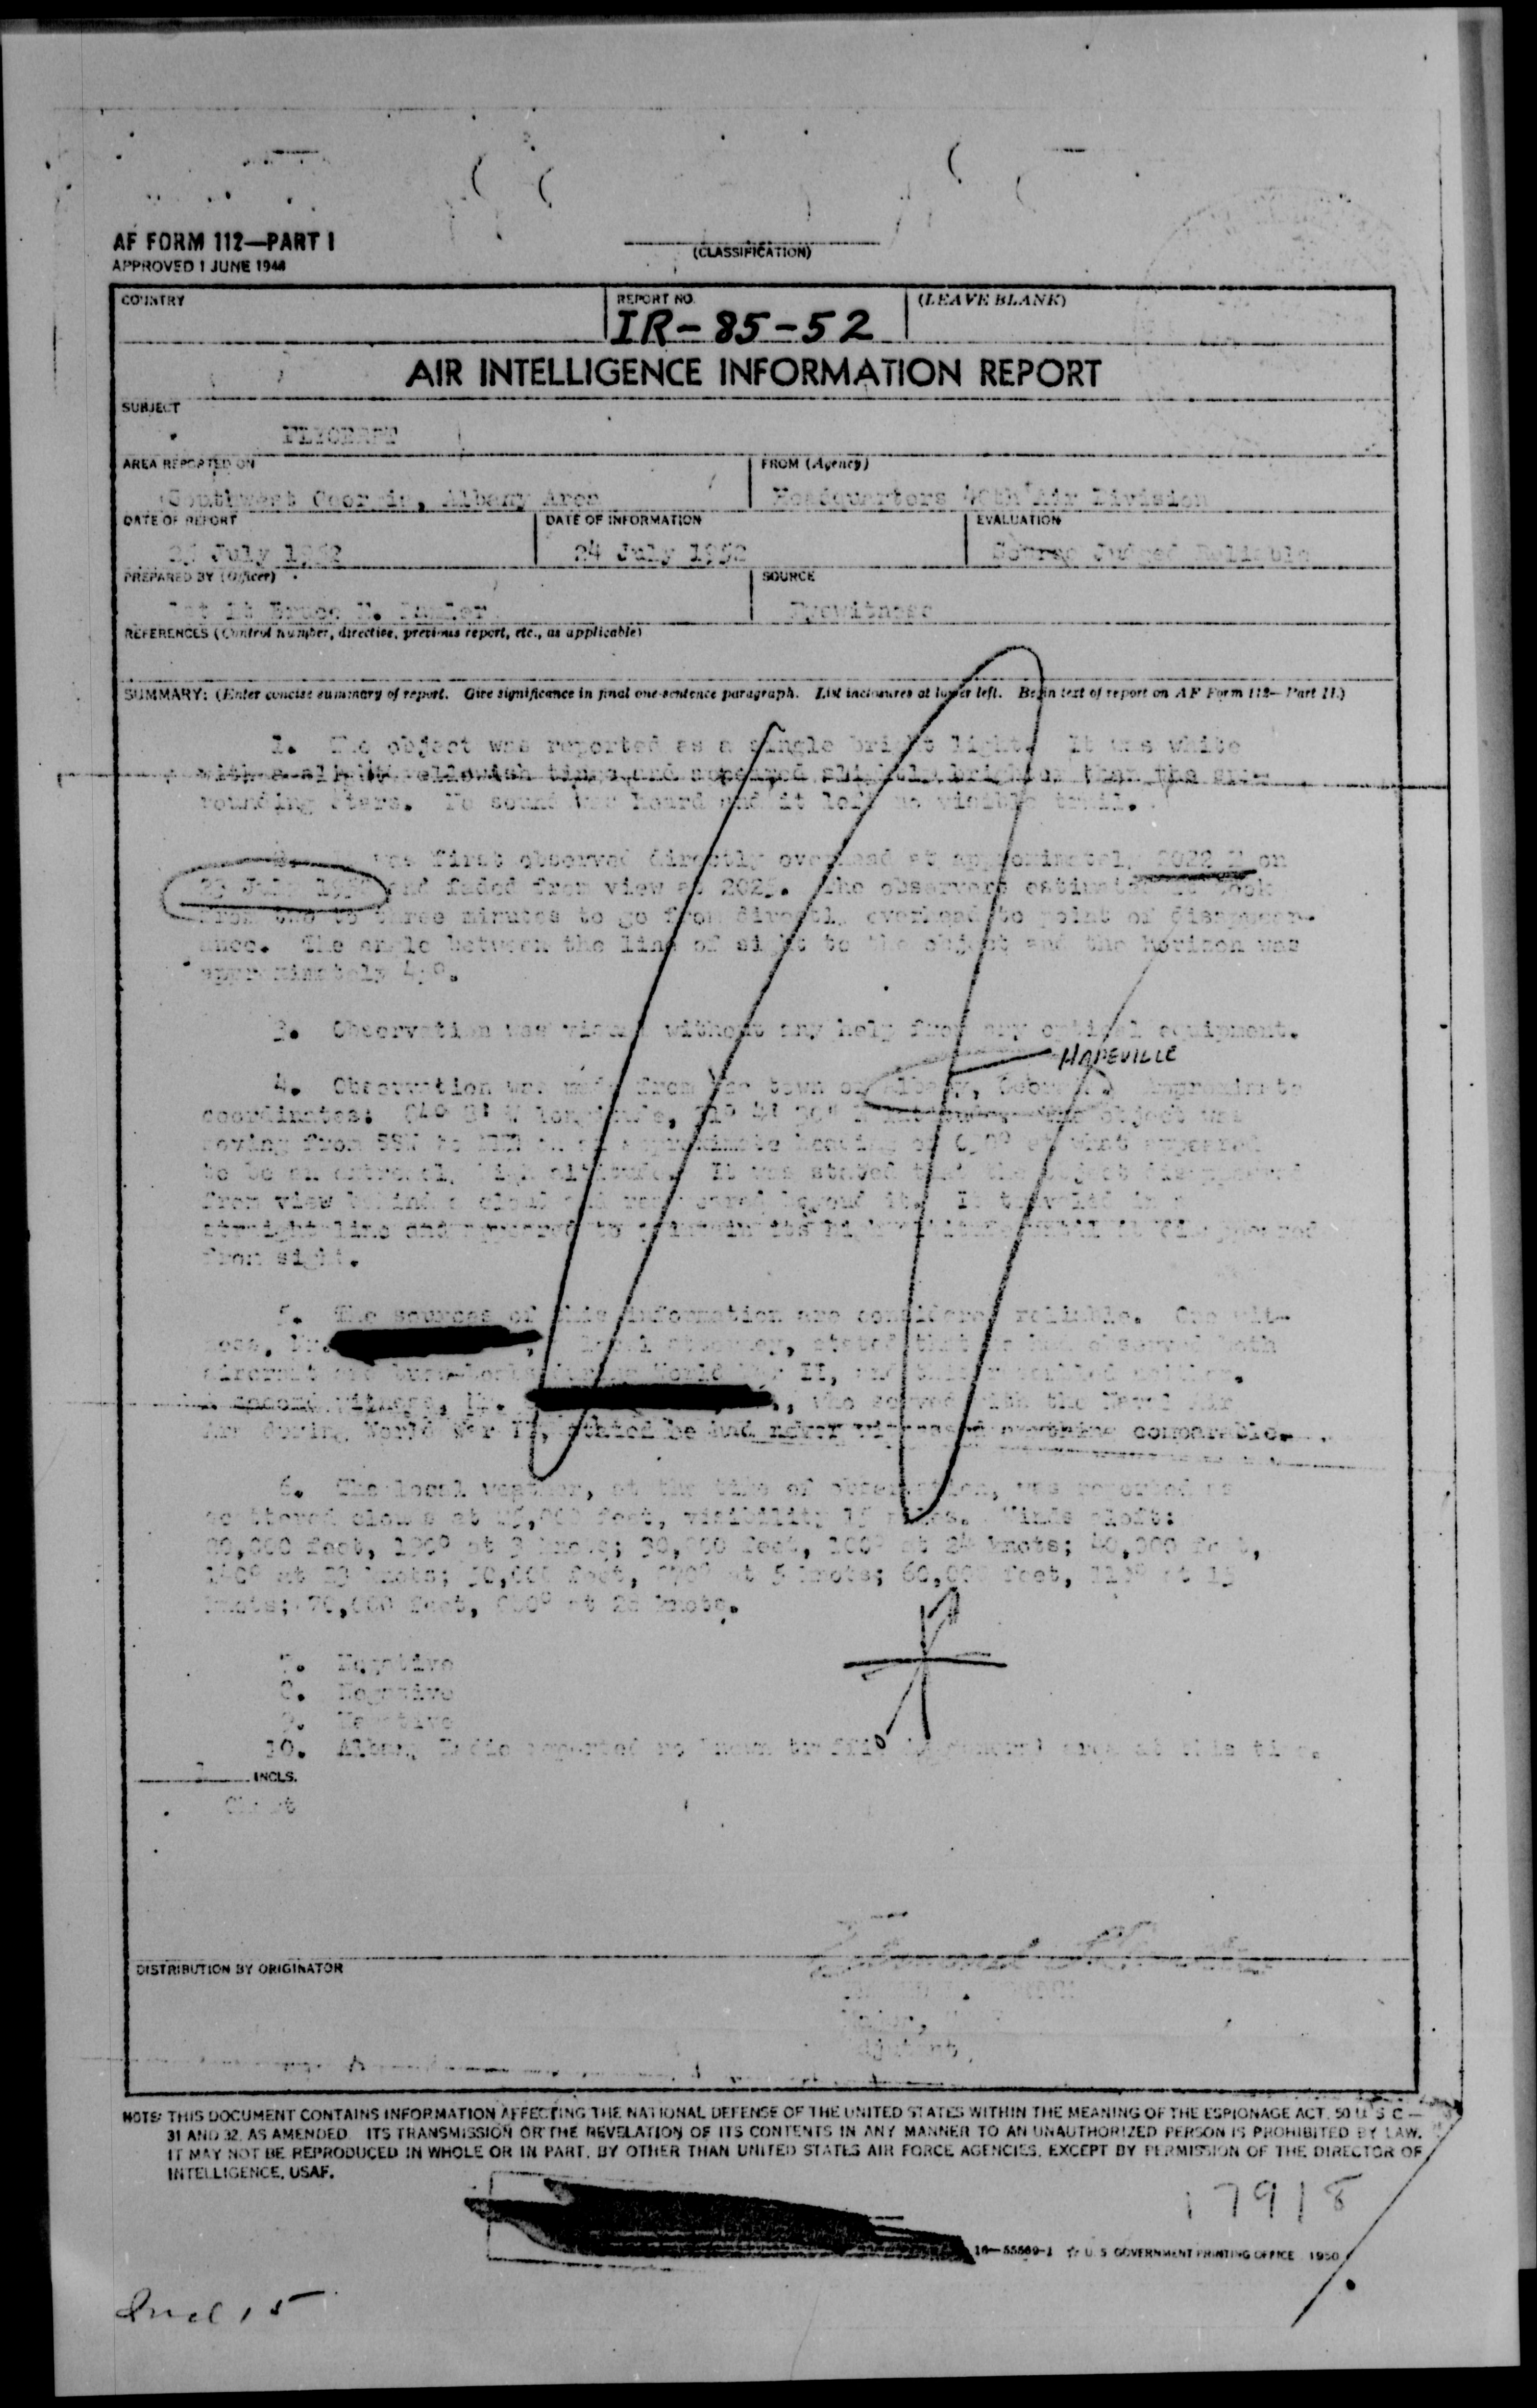 AF FORM 112—PART I
APPROVED 1 JUNE 1948
(CLASSIFICATION)
COUNTRY
REPORT NO.
(LEAVE BLANK)
IR-85-52
AIR INTELLIGENCE INFORMATION REPORT
SUBJECT
FLYOBRPT
AREA REPORTED ON
FROM (Agency)
Southwest Georgia, Albany Area
Headquarters Air Division
DATE OF REPORT
DATE OF INFORMATION
EVALUATION
July 1952
24 July 1952
Source Judged Reliable
PREPARED BY (Officer)
SOURCE
1st Lt Bruce
Eyewitness
REFERENCES (Control number, directive, previous report, etc., as applicable)
SUMMARY: (Enter concise summary of report. Give significance in final one-sentence paragraph. List inclosures at lower left. Begin text of report on AF Form 112—Part II.)
1. The object was reported as a single bright light. It was white
with a slight yellowish tinge and appeared slightly brighter than the sur-
rounding stars. No sound was heard and it left no visible trail.
was first observed directly overhead at approximately 2022 on
23 July 1952 and faded from view at 2025. The observers estimated it took
from two to three minutes to go from directly overhead to point of disappear-
ance. The angle between the line of sight to the object and the horizon was
approximately
3. Observation was visual without any help from any optical equipment.
HAPEVILLE
4. Observation was made from the town of Albany, Georgia. Approximate
coordinates: longitude, object was
moving from SSW to NNE on an approximate heading of at what appeared
to be an extremely high altitude. It was stated that the object disappeared
from view behind a cloud and reappeared beyond it. It traveled in a
straight line and appeared to maintain its high altitude until it disappeared
from sight.
5. The sources of this information are considered reliable. One wit-
ness, Mr. local attorney, stated that he had observed both
aircraft and during World War II, and this resembled neither.
A second witness, Mr. who served with the Naval Air
Arm during World War II, stated he had never witnessed anything comparable.
6. The local weather, at the time of observation, was reported as
scattered clouds at 25,000 feet, visibility 15 miles. Winds aloft:
20,000 feet, at 3 knots; 30,000 feet, at 24 knots; 40,000 feet,
at knots; 50,000 feet, at 5 knots; 60,000 feet, at
knots; 70,000 feet, at knots.
7. Negative
8. Negative
9. Negative
10. Albany Radio reported no known traffic in general area at this time.
INCLS.
Chart
DISTRIBUTION BY ORIGINATOR
Major,
Adjutant
NOTE: THIS DOCUMENT CONTAINS INFORMATION AFFECTING THE NATIONAL DEFENSE OF THE UNITED STATES WITHIN THE MEANING OF THE ESPIONAGE ACT, 50 U S C —
31 AND 32, AS AMENDED. ITS TRANSMISSION OR THE REVELATION OF ITS CONTENTS IN ANY MANNER TO AN UNAUTHORIZED PERSON IS PROHIBITED BY LAW.
IT MAY NOT BE REPRODUCED IN WHOLE OR IN PART, BY OTHER THAN UNITED STATES AIR FORCE AGENCIES, EXCEPT BY PERMISSION OF THE DIRECTOR OF
INTELLIGENCE, USAF.
17918
16—55569-1 ☆ U. S. GOVERNMENT PRINTING OFFICE 1950
Incl 15